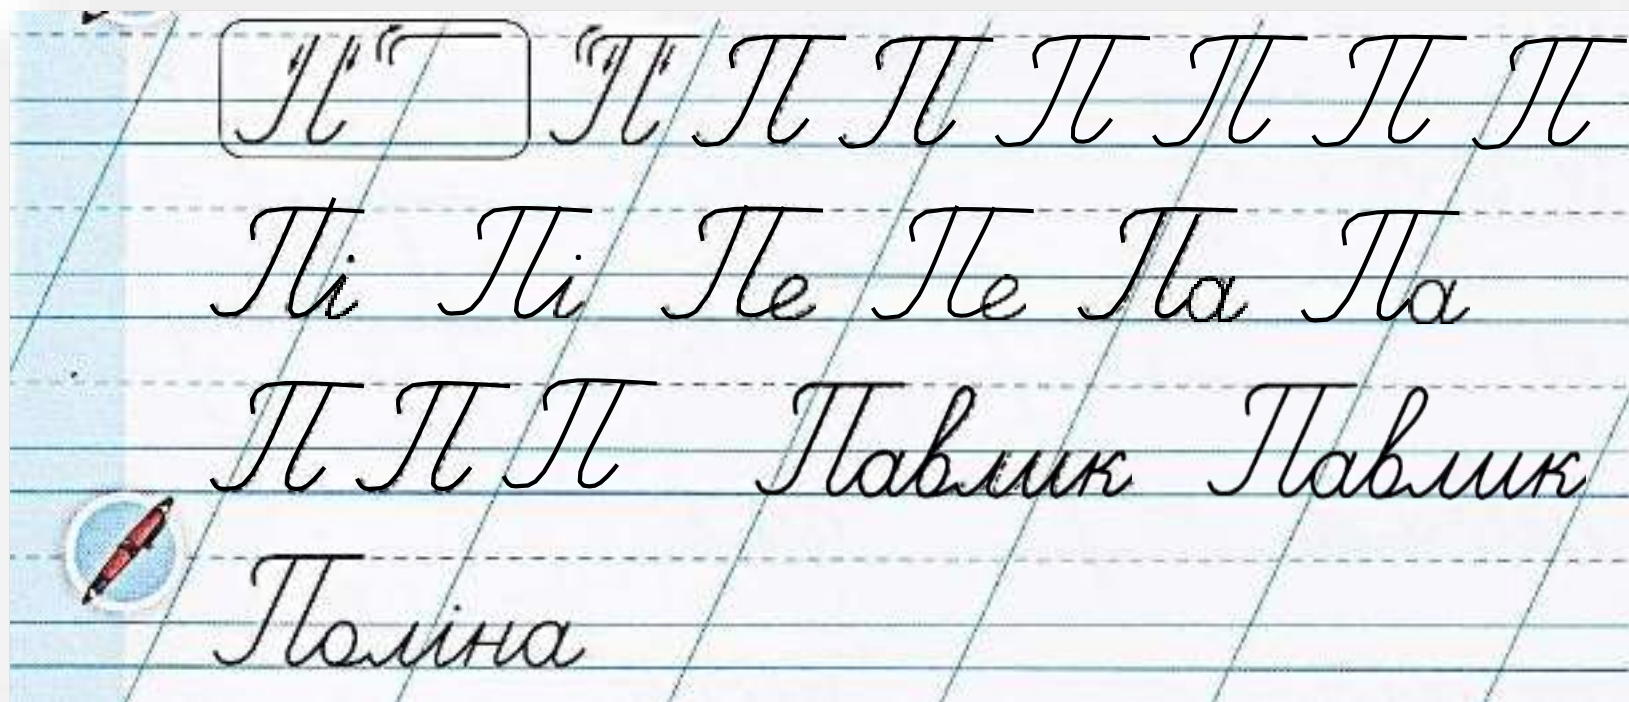 П П П П П П П П
Пі Пі Пе Пе Па Па
П П П Павлик Павлик
Поліна